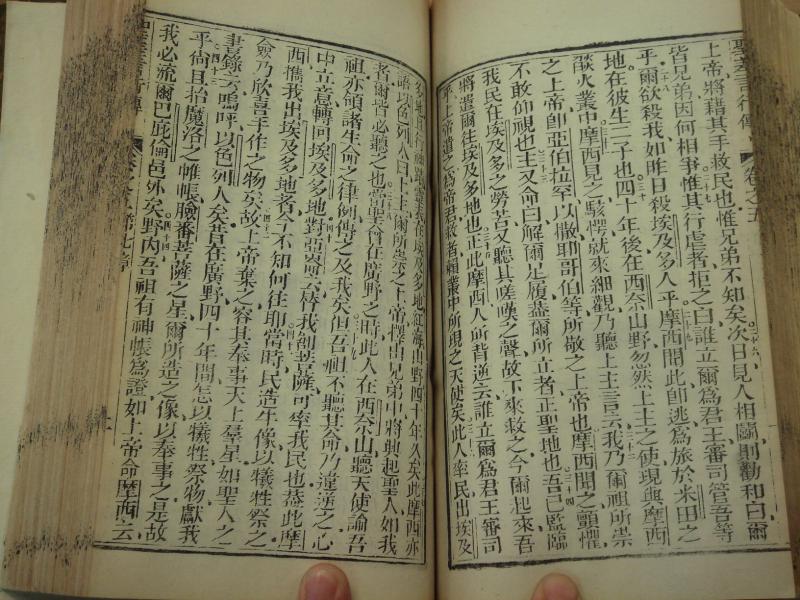 聖差言行傳 卷之五
上帝將藉其手救民也惟兄弟不知矣次日見人相鬭則勸和曰爾
皆兄弟因何相爭惟其行虐者拒之曰誰立爾爲君王審司管吾等
乎爾欲殺我如昨日殺埃及多人乎摩西聞此卽逃爲旅於米田之
地在彼生二子也四十年後在西奈山野忽然上主之使現與摩西
燄火叢中摩西見之駭愕就來細觀乃聽上主言云我乃爾祖所崇
之上帝卽亞伯拉罕以撒耶哥伯等所敬之上帝也摩西聞之顫懼
不敢仰視也主又命曰解爾足履蓋爾所立者正聖地也吾已監臨
我民在埃及多之勞苦又聽其嗟嘆之聲故下來救之今爾起來吾
將遣爾往埃及多地也正此摩西人所背逆云誰立爾爲君王審司
乎上帝遣之爲帝君救者賴叢中所現之天使矣此人率民出埃及
多地
在埃及多地紅海山野四十年久矣此摩西亦
語以色列人曰上主爾所崇之上帝擇由兄弟中將興起聖人如我
者爾皆必聽之也當聖會在廣野之時此人在西奈山聽天使諭吾
祖亦領諸生命之律例傳之及我矣但吾祖不聽其命乃違逆之心
中立意轉回埃及多地對亞崙云替我創菩薩可率我民也蓋此摩
西攜我出埃及多地者今不知何往耶當時民造牛像以犧牲祭之
僉乃欣喜手作之物矣故上帝棄之容其奉事天上羣星如聖人之
書錄云嗚呼以色列人矣昔在廣野四十年間怎以犧牲祭物獻我
乎尚且抬魔洛之帷帳臉番菩薩之星爾所造之像以奉事之是故
我必流爾巴庇倫邑外矣野內吾祖有神帳爲證如上帝命摩西云